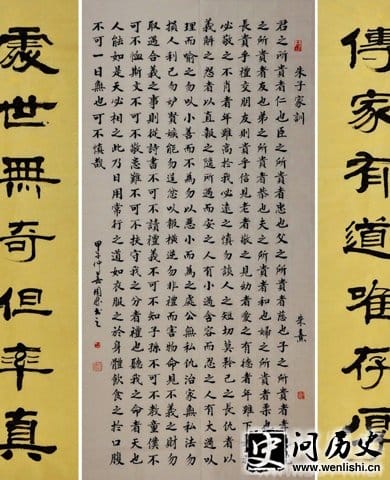 傳家有道唯存厚
朱子家訓
朱熹
君之所貴者仁也臣之所貴者忠也父之所貴者慈也子之所貴者孝也兄
之所貴者友也弟之所貴者恭也夫之所貴者和也婦之所貴者柔也事師
長貴乎禮交朋友貴乎信見老者敬之見幼者愛之有德者年雖下於我我
必敬之不肖者年雖高於我我必遠之慎勿談人之短切莫矜己之長仇者以
義解之怨者以直報之隨所遇而安之人有小過含容而忍之人有大過以
理而喻之勿以小善而不為勿以惡小而為之處公無私仇治家無私法勿
損人利己勿妒賢嫉能勿逞忿以報橫逆勿非禮而害物命見不義之財勿
取遇合義之事則從詩書不可不讀禮義不可不知子孫不可不教童僕不
可不恤斯文不可不敬患難不可不扶守我之分者禮也聽我之命者天也
人能如是天必相之此乃日用常行之道如衣服之於身體飲食之於口腹
不可一日無也可不慎哉
處世無奇但率真
问历史
www.wenlishi.cn